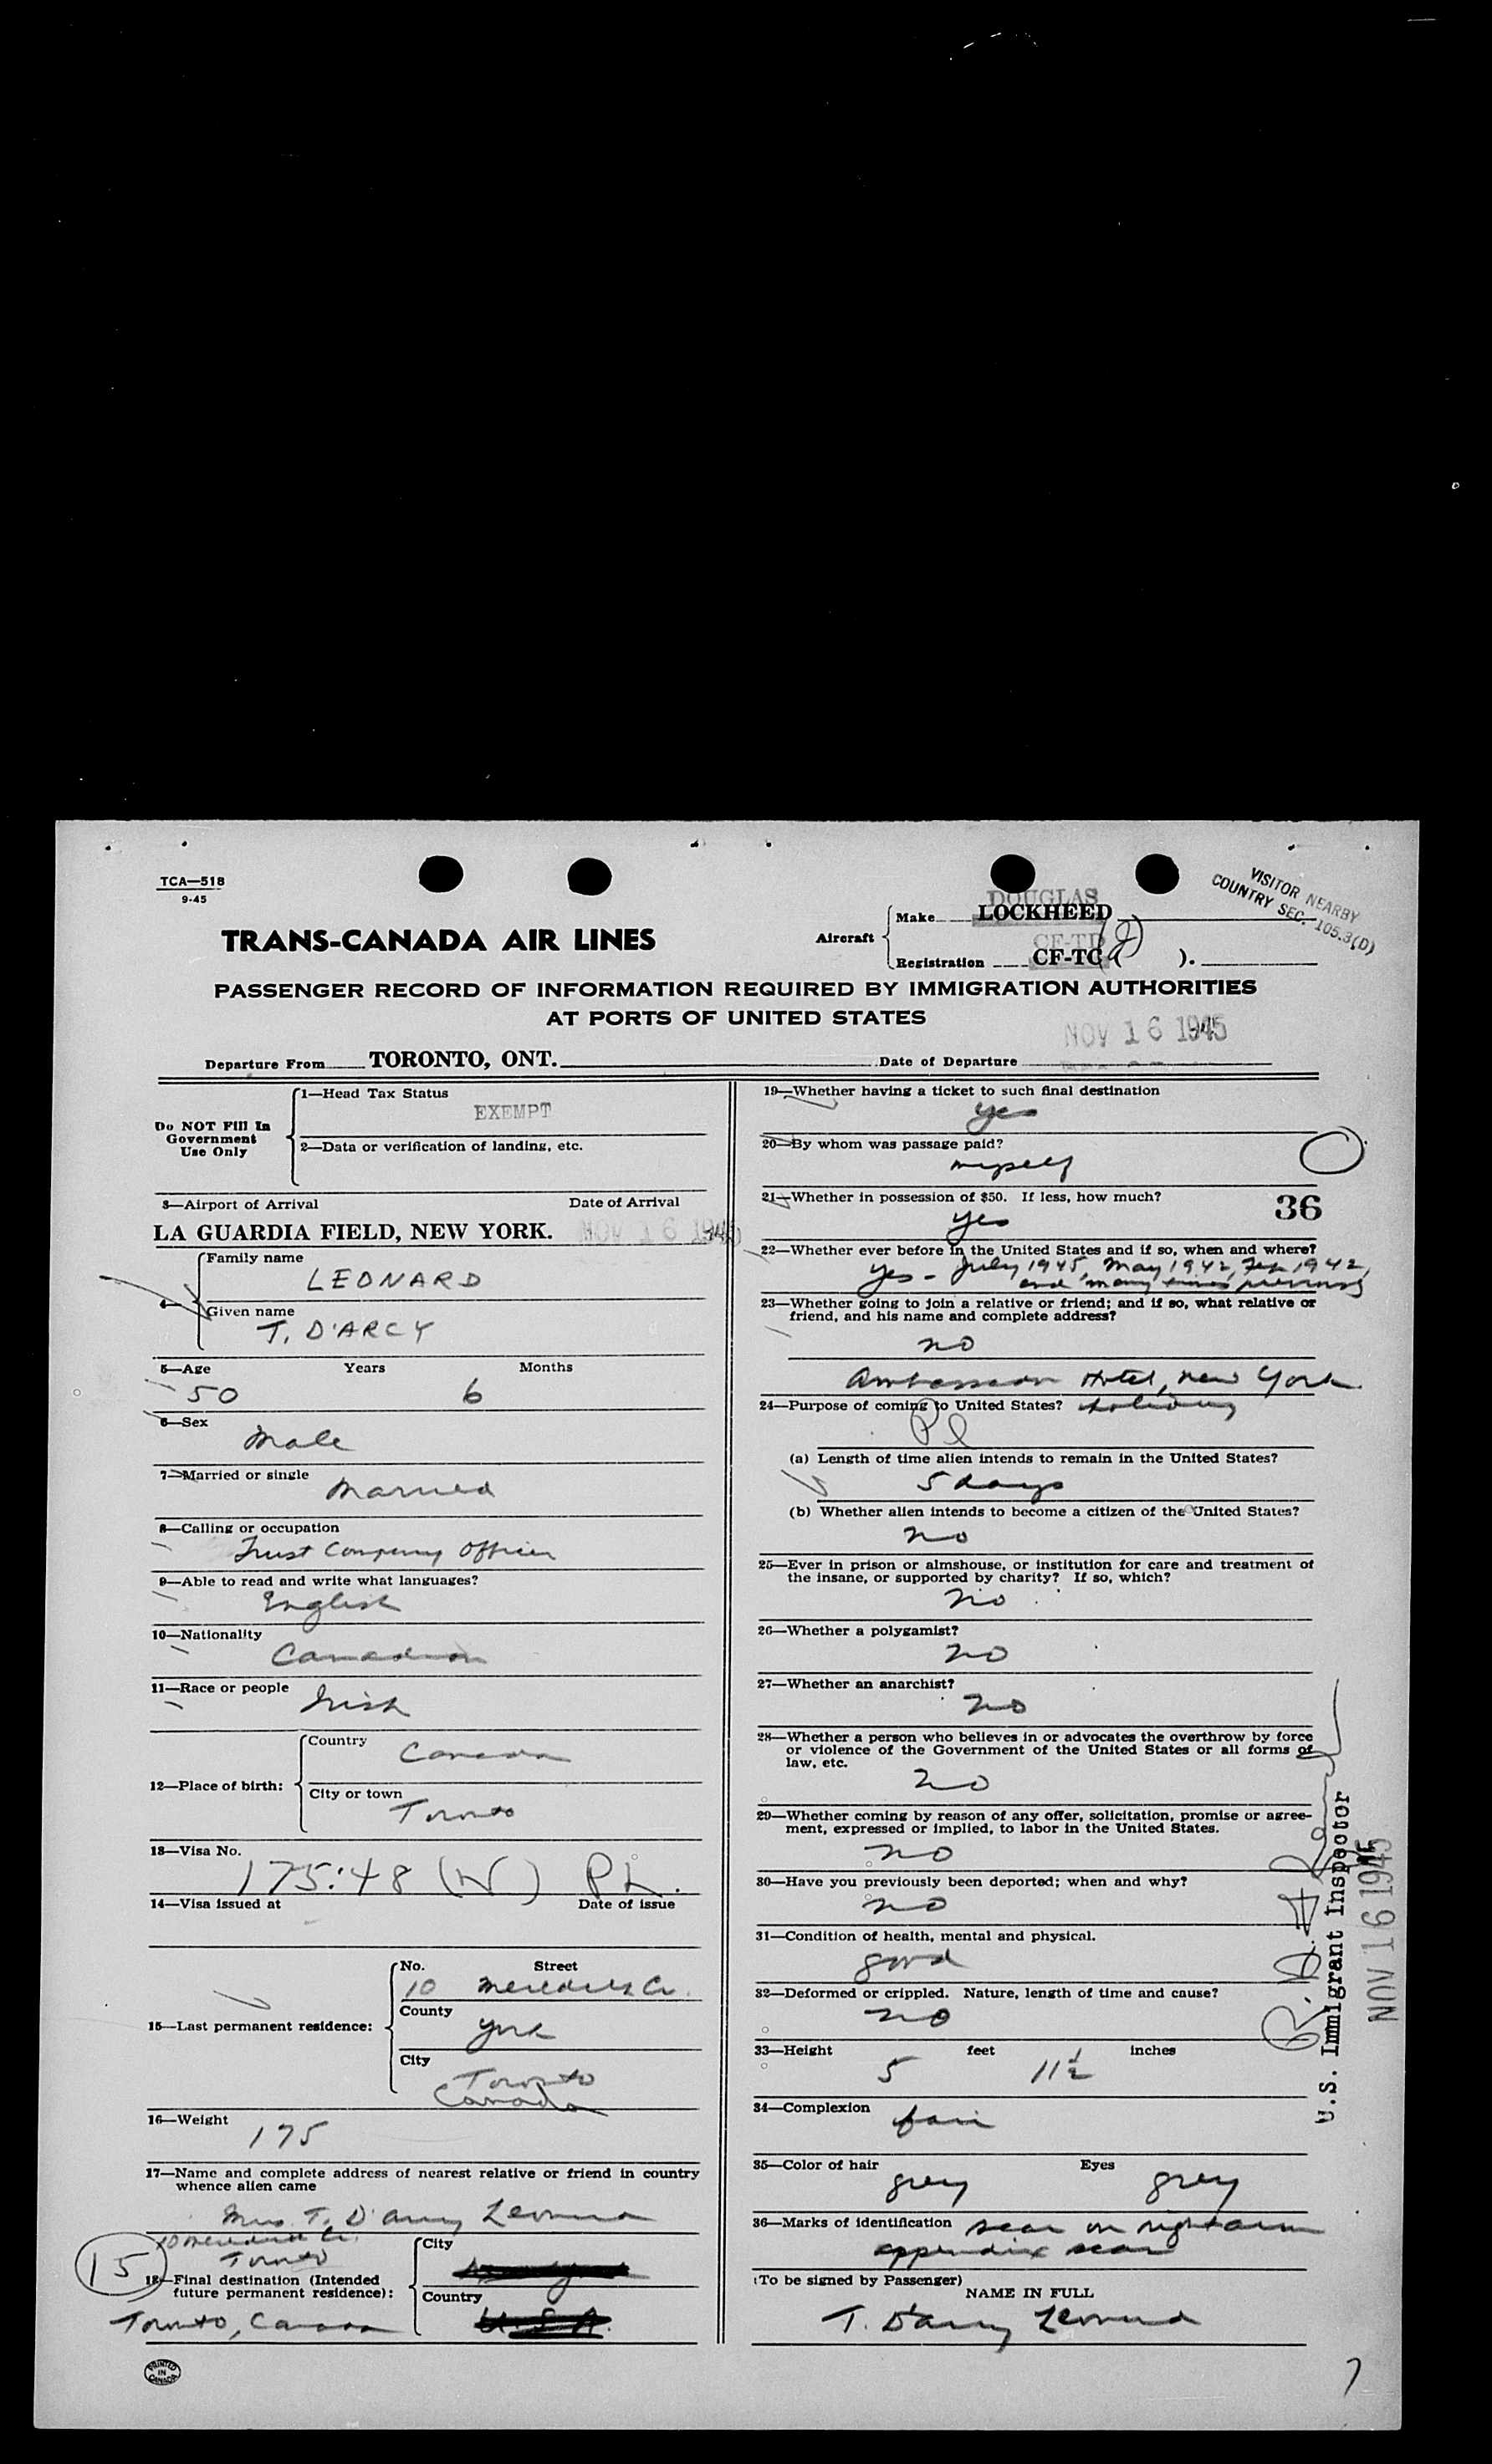 TCA—518
9-45
VISITOR NEARBY
COUNTRY SEC. 105.3(D)
TRANS-CANADA AIR LINES
Aircraft
DOUGLAS
Make LOCKHEED
CF-TD
Registration CF-TC ( ).
PASSENGER RECORD OF INFORMATION REQUIRED BY IMMIGRATION AUTHORITIES
AT PORTS OF UNITED STATES
NOV 16 1945
Departure From TORONTO, ONT. Date of Departure
Do NOT Fill In
Government
Use Only
1—Head Tax Status
EXEMPT
2—Data or verification of landing, etc.
3—Airport of Arrival Date of Arrival
LA GUARDIA FIELD, NEW YORK. NOV 16 1945
4—
Family name
LEONARD
Given name
T. D'ARCY
5—Age Years Months
50 6
6—Sex
Male
7—Married or single
Married
8—Calling or occupation
Trust Company Officer
9—Able to read and write what languages?
English
10—Nationality
Canadian
11—Race or people
Irish
12—Place of birth:
Country
Canada
City or town
Toronto
13—Visa No.
175:48 (W) PL.
14—Visa issued at Date of issue
15—Last permanent residence:
No. Street
10 Meredith Cr.
County
York
City
Toronto
Canada
16—Weight
175
17—Name and complete address of nearest relative or friend in country
whence alien came
Mrs. T. D'Arcy Leonard
10 Meredith Cr.
Toronto
15
18—Final destination (Intended
future permanent residence):
Toronto, Canada
City
Country
U.S.A.
PRINTED
IN
CANADA
19—Whether having a ticket to such final destination
yes
20—By whom was passage paid?
myself
21—Whether in possession of $50. If less, how much?
yes
36
22—Whether ever before in the United States and if so, when and where?
Yes - July 1945, May 1942, Feb 1942,
and many times previously
23—Whether going to join a relative or friend; and if so, what relative or
friend, and his name and complete address?
no
Ambassador Hotel, New York
24—Purpose of coming to United States? holiday
Pl
(a) Length of time alien intends to remain in the United States?
5 days
(b) Whether alien intends to become a citizen of the United States?
no
25—Ever in prison or almshouse, or institution for care and treatment of
the insane, or supported by charity? If so, which?
no
26—Whether a polygamist?
no
27—Whether an anarchist?
no
28—Whether a person who believes in or advocates the overthrow by force
or violence of the Government of the United States or all forms of
law, etc.
no
29—Whether coming by reason of any offer, solicitation, promise or agree-
ment, expressed or implied, to labor in the United States.
no
30—Have you previously been deported; when and why?
no
31—Condition of health, mental and physical.
good
32—Deformed or crippled. Nature, length of time and cause?
no
33—Height feet inches
5 11½
34—Complexion
fair
35—Color of hair Eyes
grey grey
36—Marks of identification scar on right arm
appendix scar
(To be signed by Passenger)
NAME IN FULL
T. D'Arcy Leonard
U.S. Immigrant Inspector
NOV 16 1945
7